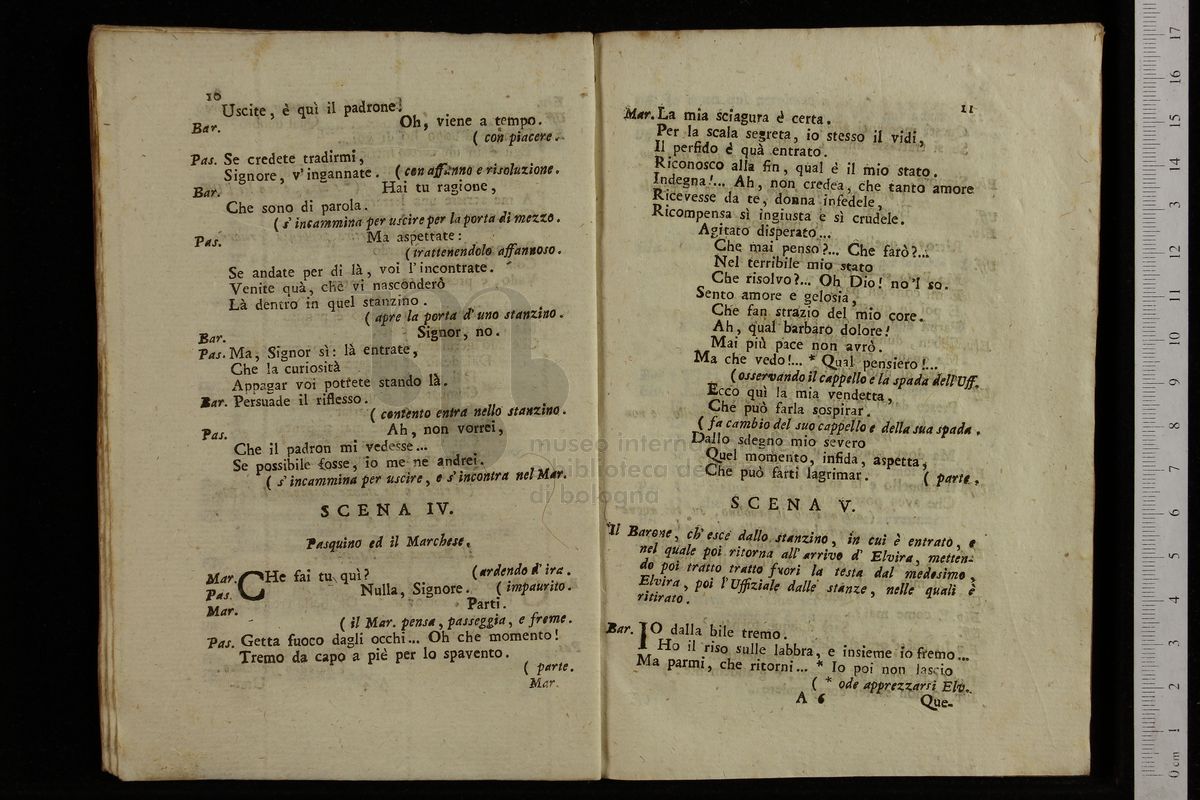 10
Uscite, è quì il padrone!
Bar. Oh, viene a tempo.
( con piacere.
Pas. Se credete tradirmi,
Signore, v'ingannate. ( con affanno e risoluzione.
Bar. Hai tu ragione,
Che sono di parola.
( s' incammina per uscire per la porta di mezzo.
Pas. Ma aspettate:
( trattenendolo affannoso.
Se andate per di là, voi l'incontrate.
Venite quà, che vi nasconderò
Là dentro in quel stanzino.
( apre la porta d' uno stanzino.
Bar. Signor, no.
Pas. Ma, Signor sì: là entrate,
Che la curiosità
Appagar voi potrete stando là.
Bar. Persuade il riflesso.
( contento entra nello stanzino.
Pas. Ah, non vorrei,
Che il padron mi vedesse...
Se possibile fosse, io me ne andrei.
( s' incammina per uscire, e s' incontra nel Mar.
SCENA IV.
Pasquino ed il Marchese.
Mar. CHe fai tu quì? (ardendo d' ira.
Pas. Nulla, Signore. ( impaurito.
Mar. Parti.
( il Mar. pensa, passeggia, e freme.
Pas. Getta fuoco dagli occhi... Oh che momento!
Tremo da capo a piè per lo spavento.
( parte.
Mar.
11
Mar. La mia sciagura è certa.
Per la scala segreta, io stesso il vidi,
Il perfido è quà entrato.
Riconosco alla fin, qual è il mio stato.
Indegna!... Ah, non credea, che tanto amore
Ricevesse da te, donna infedele,
Ricompensa sì ingiusta e sì crudele.
Agitato disperato...
Che mai penso?... Che farò?...
Nel terribile mio stato
Che risolvo?... Oh Dio! no'l so.
Sento amore e gelosia,
Che fan strazio del mio core.
Ah, qual barbaro dolore!
Mai più pace non avrò.
Ma che vedo!... * Qual pensiero!...
(osservando il cappello e la spada dell'Uff.
Ecco quì la mia vendetta,
Che può farla sospirar.
( fa cambio del suo cappello e della sua spada.
Dallo sdegno mio severo
Quel momento, infida, aspetta,
Che può farti lagrimar. ( parte,
SCENA V.
Il Barone, ch' esce dallo stanzino, in cui è entrato, e
nel quale poi ritorna all' arrivo d' Elvira, metten-
do poi tratto tratto fuori la testa dal medesimo,
Elvira, poi l'Uffiziale dalle stanze, nelle quali è
ritirato.
Bar. IO dalla bile tremo.
Ho il riso sulle labbra, e insieme io fremo...
Ma parmi, che ritorni... * Io poi non lascio
( * ode apprezzarsi Elv.
A 6 Que-
museo intern
biblioteca de
di bologna
17
16
15
14
13
12
11
10
9
8
7
6
5
4
3
2
1
0 cm